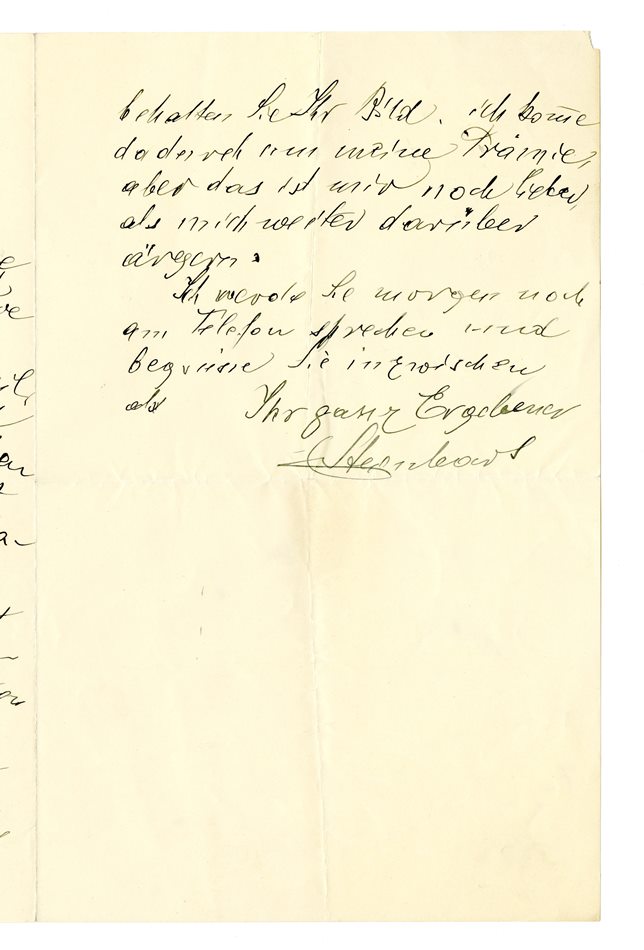 behalten Sie Ihr Bild. ich kom̅e
dadurch um meine Prämie,
aber das ist mir noch lieber,
als mich weiter darüber
ärgern.
Ich werde Sie morgen noch
am Telefon sprechen und
begrüsse Sie inzwischen
als Ihr ganz Ergebener